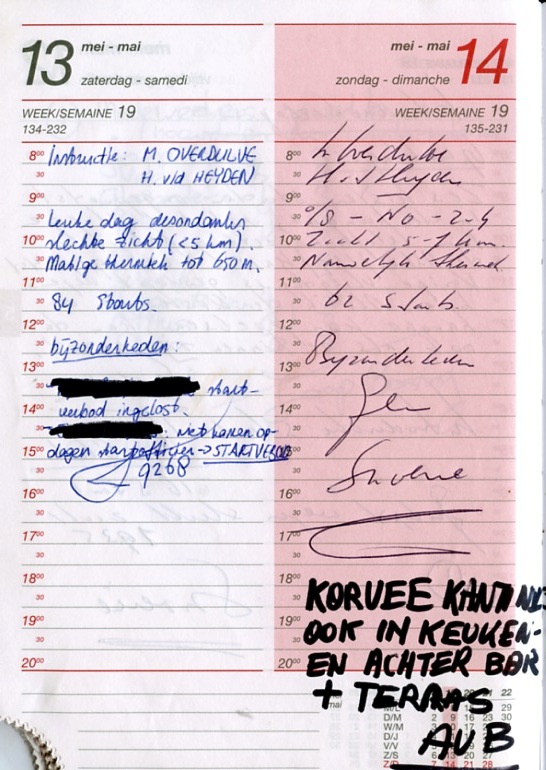 13
mei - mai
zaterdag - samedi
WEEK/SEMAINE 19
134-232
8⁰⁰ Instructie: M. OVERDULVE
30 H. v/d HEYDEN
9⁰⁰
30 Leuke dag desondanks
10⁰⁰ slechte zicht (<5 km).
30 Matige thermiek tot 650 m.
11⁰⁰
30 84 starts.
12⁰⁰
30 bijzonderheden:
13⁰⁰
30 start-
14⁰⁰ verbod ingelost.
30 niet komen op-
15⁰⁰ dagen startofficier → STARTVERBOD
30 9268
16⁰⁰
30
17⁰⁰
30
18⁰⁰
30
19⁰⁰
30
20⁰⁰
mei - mai
14
zondag - dimanche
WEEK/SEMAINE 19
135-231
8⁰⁰ Overdulve
30 H. v/d Heyden
9⁰⁰
30 - NO - 2-4
10⁰⁰ Zicht 5-7 km.
30
11⁰⁰
30 62 starts.
12⁰⁰
30
13⁰⁰ Byzonderheden
30
14⁰⁰ Geen
30
15⁰⁰
30
16⁰⁰
30
17⁰⁰
30
18⁰⁰
30 KORVEE KANTINE
19⁰⁰ OOK IN KEUKEN-
30 EN ACHTER BAR
20⁰⁰
+ TERRAS
AUB
22
M/L 29
D/M 2 9 16 23 30
W/M
D/J
V/V
Z/S 6 13 20
Z/D 7 14 21 28